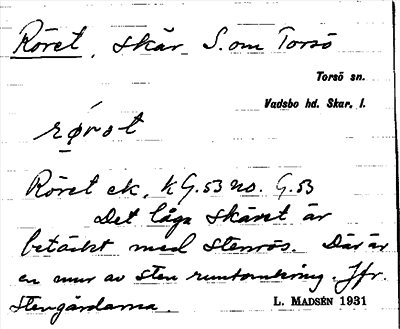 Röret, skär S. om Torsö
Torsö sn.
Vadsbo hd. Skar. l.
rǿrət
Röret ek. KG.53 no. G.53
Det låga skäret är
betäckt med stenrös. Där är
en mur av sten runtomkring. Jfr.
Stengärdarna.
L. MADSÉN 1931